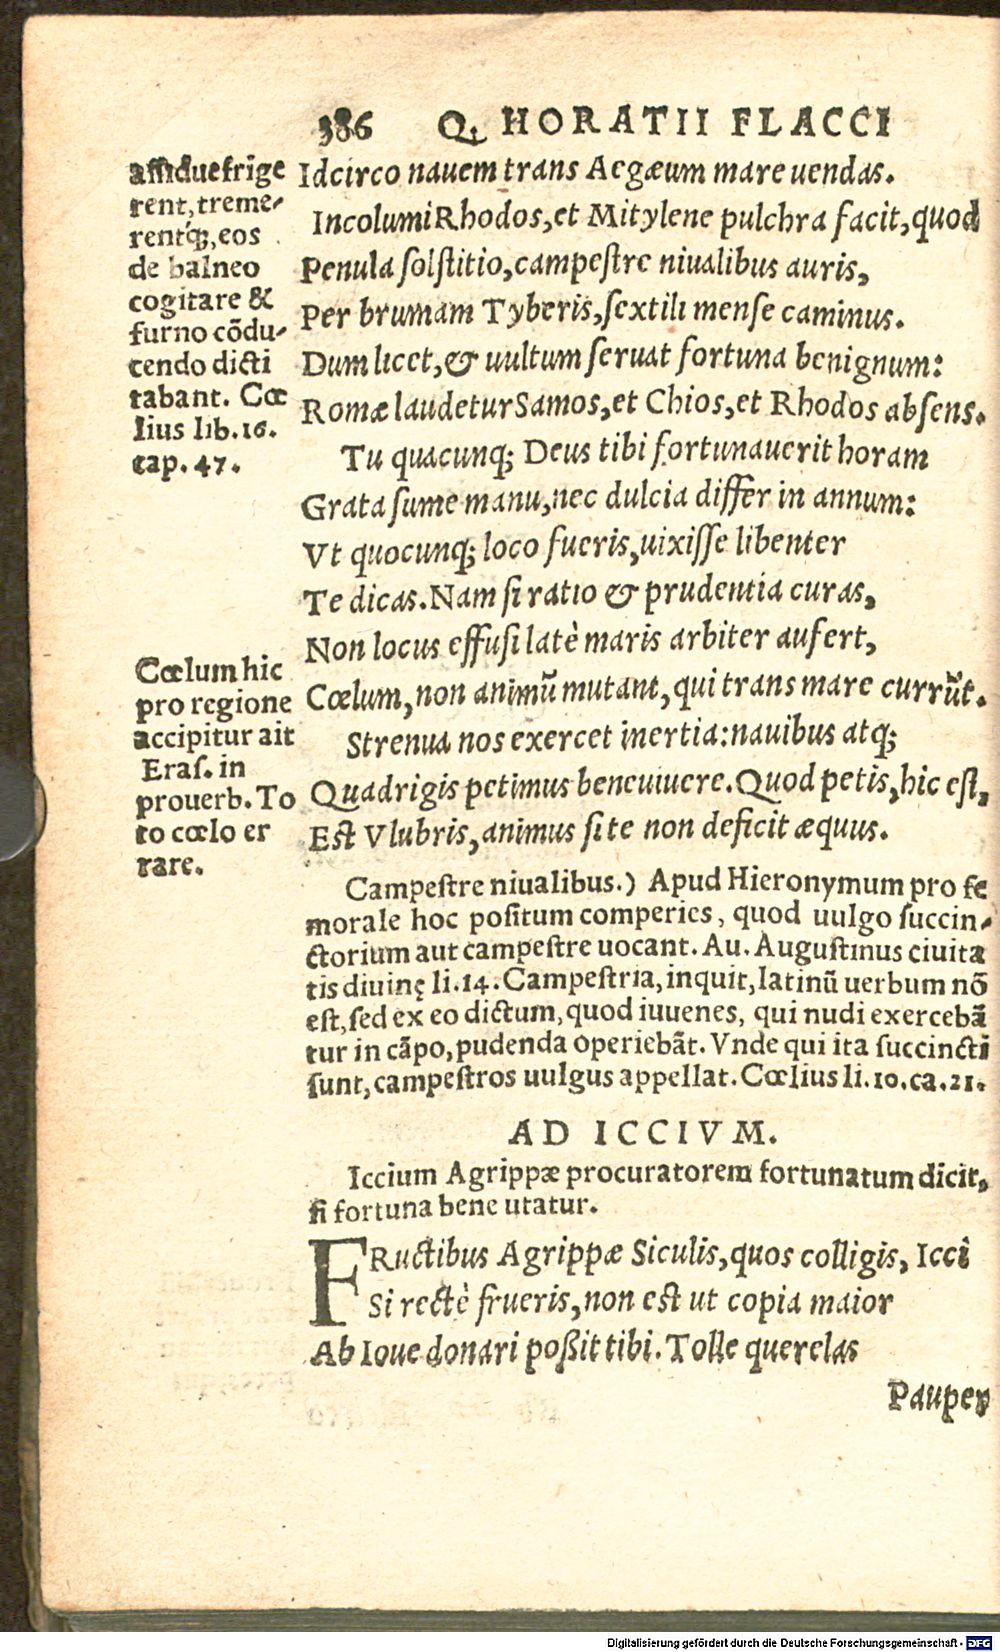 386 Q. HORATII FLACCI
assidue frige
rent, treme-
rentq́;, eos
de balneo
cogitare &
furno cōdu-
cendo dicti
tabant. Cœ
lius lib. 16.
cap. 47.
Idcirco nauem trans Aegæum mare uendas.
Incolumi Rhodos, et Mitylene pulchra facit, quod
Penula solstitio, campestre niualibus auris,
Per brumam Tyberis, sextili mense caminus.
Dum licet, & uultum seruat fortuna benignum:
Romæ laudetur Samos, et Chios, et Rhodos absens.
Tu quacunq; Deus tibi fortunauerit horam
Grata sume manu, nec dulcia differ in annum:
Vt quocunq; loco fueris, uixisse libenter
Te dicas. Nam si ratio & prudentia curas,
Non locus effusi latè maris arbiter aufert,
Cœlum, non animū mutant, qui trans mare currūt.
Strenua nos exercet inertia: nauibus atq;
Quadrigis petimus bene uiuere. Quod petis, hic est,
Est Vlubris, animus si te non deficit æquus.
Cœlum hic
pro regione
accipitur ait
Eras. in
prouerb. To
to cœlo er
rare.
Campestre niualibus.) Apud Hieronymum pro fe
morale hoc positum comperies, quod uulgo succin-
ctorium aut campestre uocant. Au. Augustinus ciuita
tis diuinę li. 14. Campestria, inquit, latinū uerbum nō
est, sed ex eo dictum, quod iuuenes, qui nudi exercebā
tur in cāpo, pudenda operiebāt. Vnde qui ita succincti
sunt, campestros uulgus appellat. Cœlius li. 10. ca. 21.
AD ICCIVM.
Iccium Agrippæ procuratorem fortunatum dicit,
si fortuna bene utatur.
FRuctibus Agrippæ Siculis, quos colligis, Icci
Si rectè frueris, non est ut copia maior
Ab Ioue donari poßit tibi. Tolle querelas
Pauper
Digitalisierung gefördert durch die Deutsche Forschungsgemeinschaft - DFG